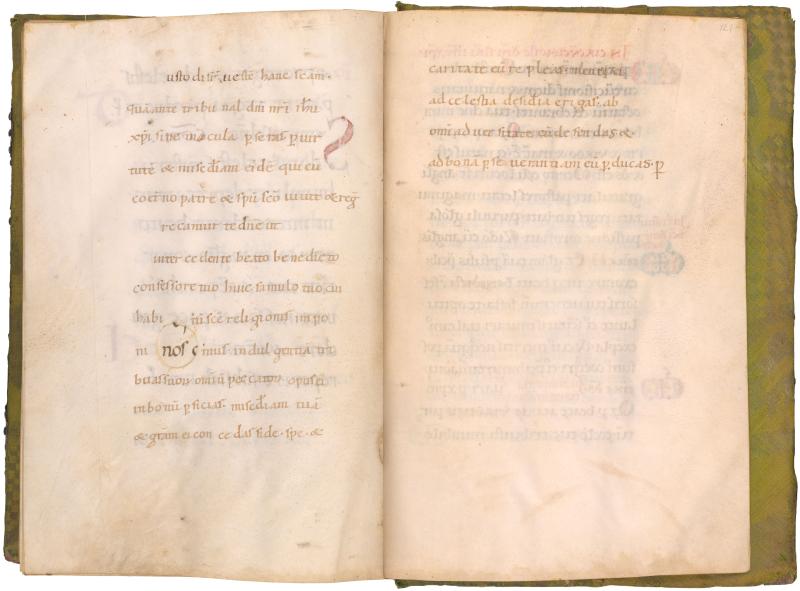 usto di sr̄. ueste hanc seam.
quā ante tribunal dn̄i nr̄i ih̄u
xp̄i sine macula p̄ se rat p̄ uir
tutē & misedīam eidē qui cū
co et̄no patre & spū scō uiuit & reg̅
recamur te dn̄e ut
inter ce dente beato be ne dic to
confessore tuo huic famulo tuo, cui
habi m̄ scē religionis im po
ni nos c imus. indul gentia tri
buas suor̄ omiū pec cator̄ opus ei
in bonū p̄ficias. misedīam tuā
& gram̄ ei con ce das fide. spe. &
caritate eū re pleas.
ad ce lestia desidia eri gas. ab
omi ad uer sitate eū de fen das &
ad bona p̄ se ue rantiam eū p̄ ducas. p̄
121